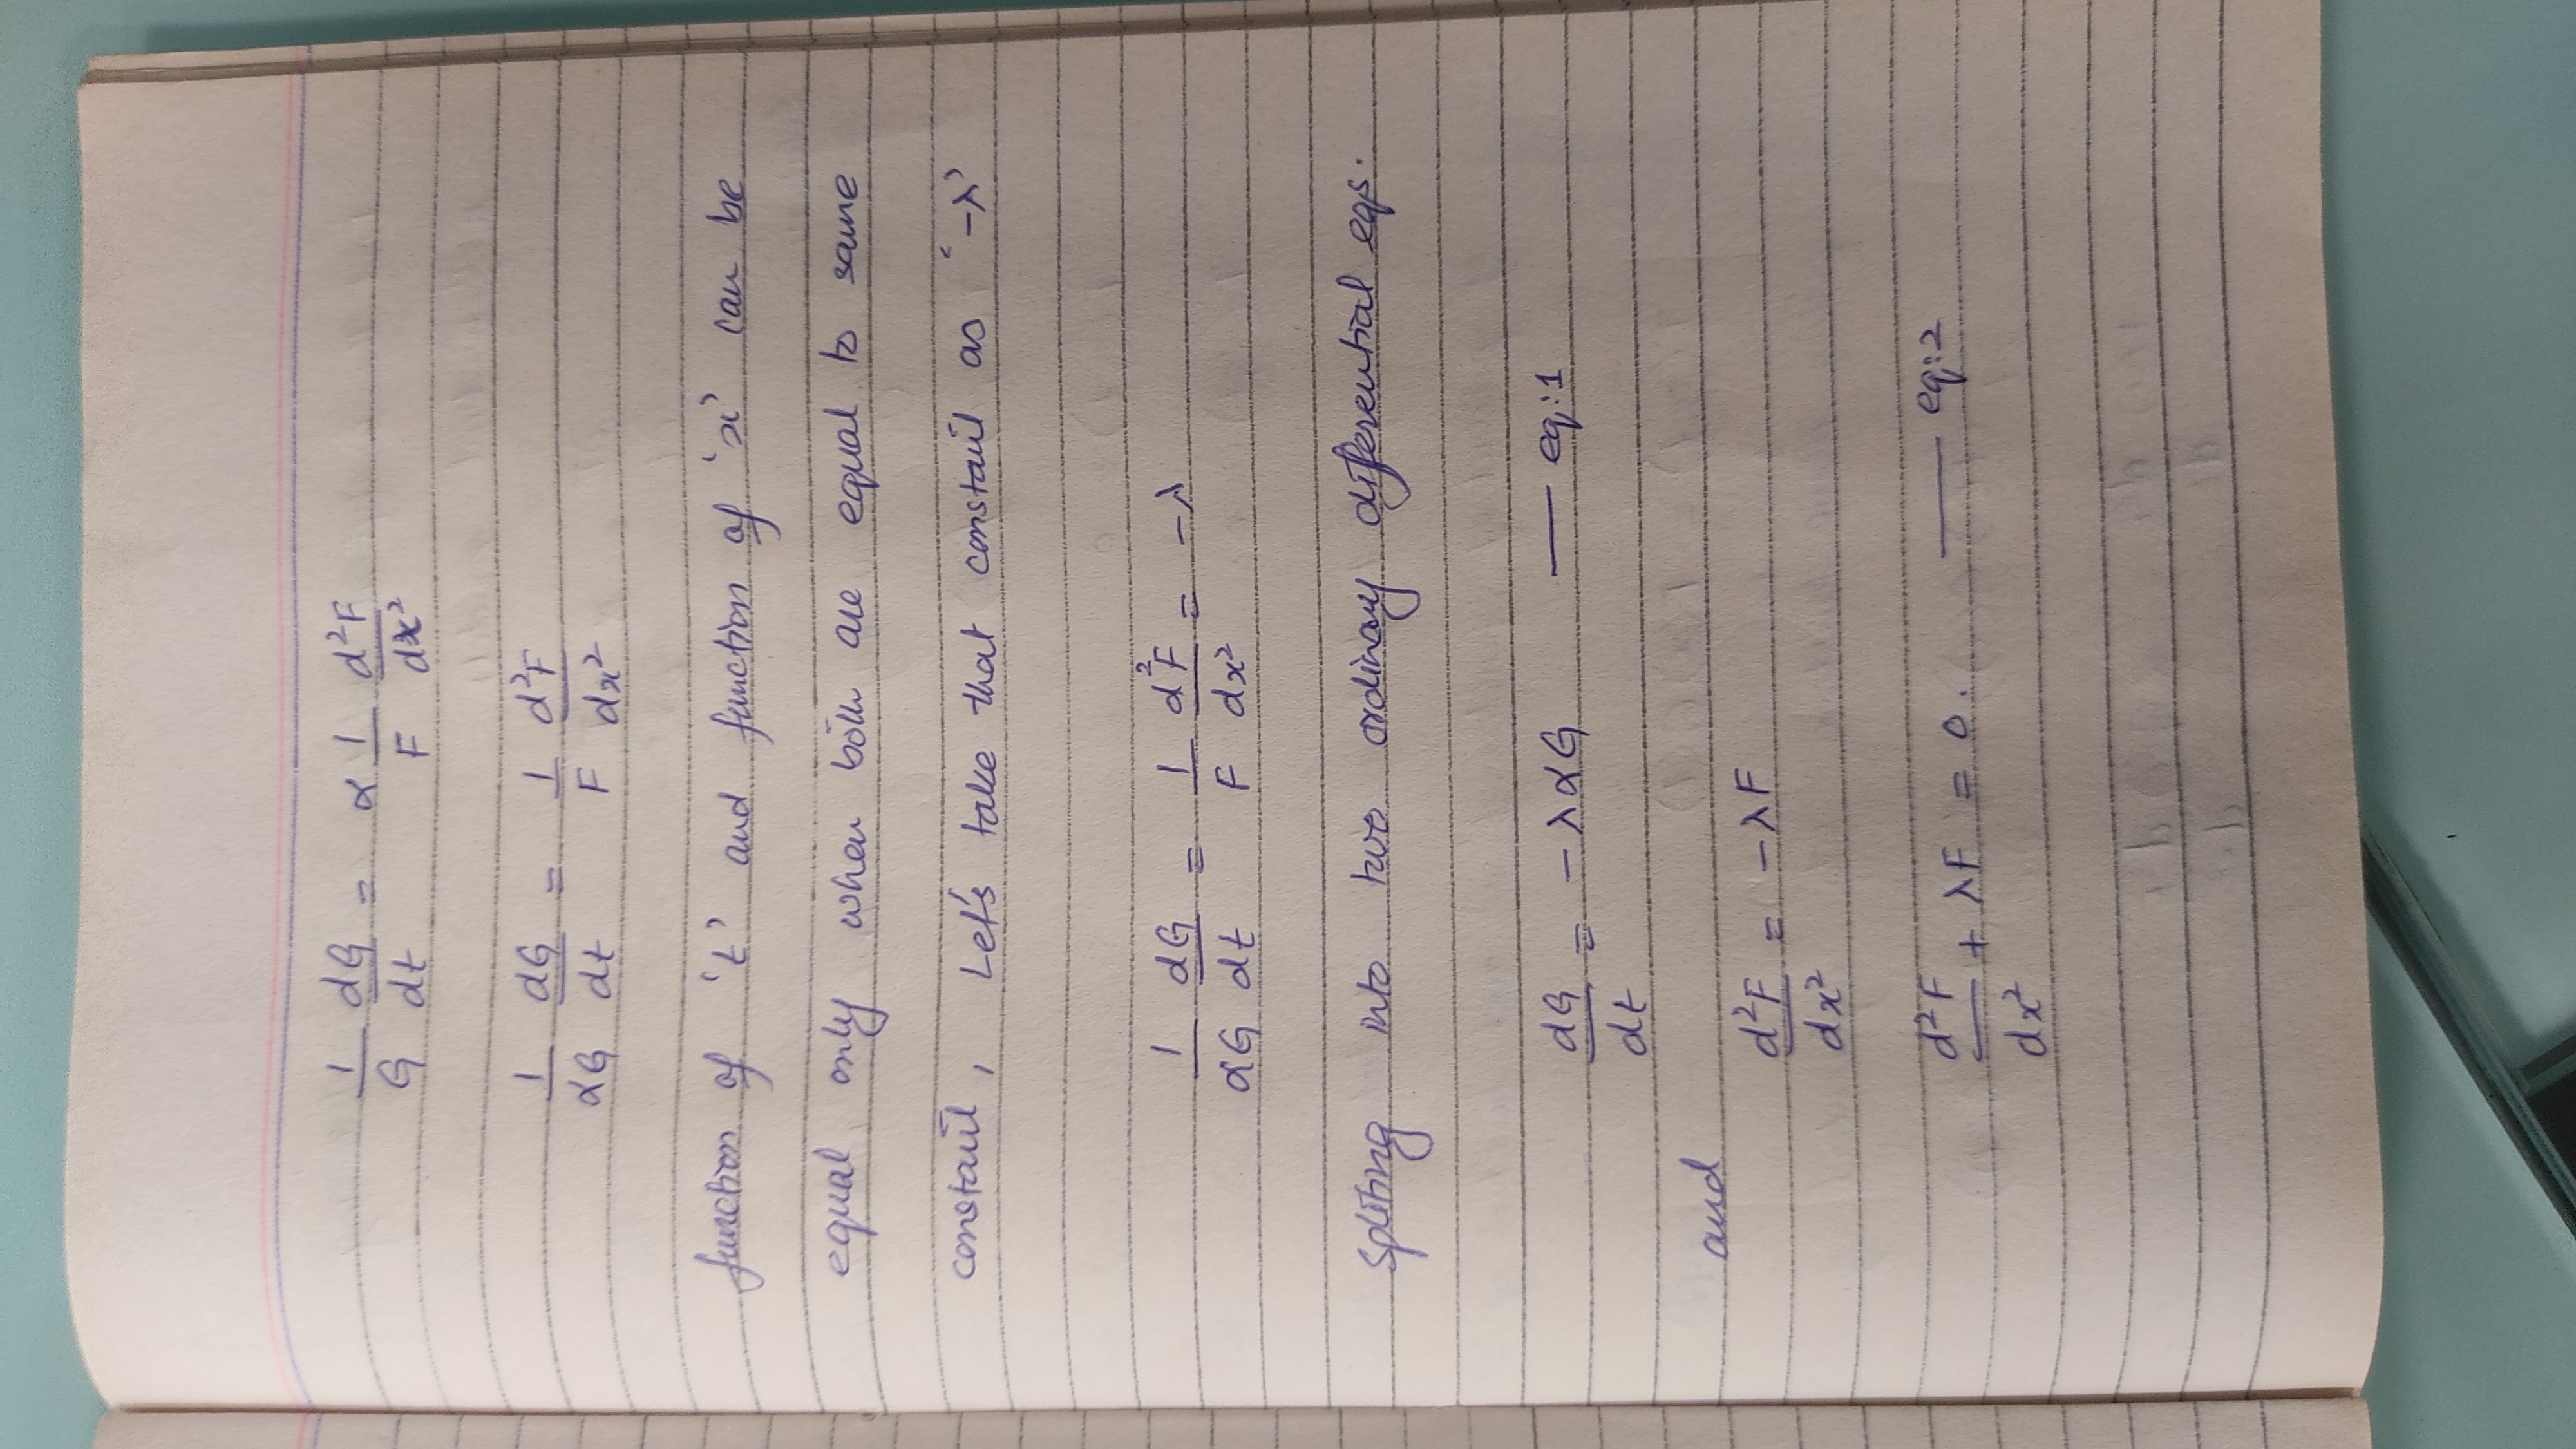 1/G dG/dt = α 1/F d²F/dx²
1/αG dG/dt = 1/F d²F/dx²
function of 't' and function of 'x' can be
equal only when both are equal to same
constant, Let's take that constant as '-λ'
1/αG dG/dt = 1/F d²F/dx² = -λ
Spliting into two ordinary differential eqs.
dG/dt = -λαG — eq:1
and
d²F/dx² = -λF
d²F/dx² + λF = 0. — eq:2